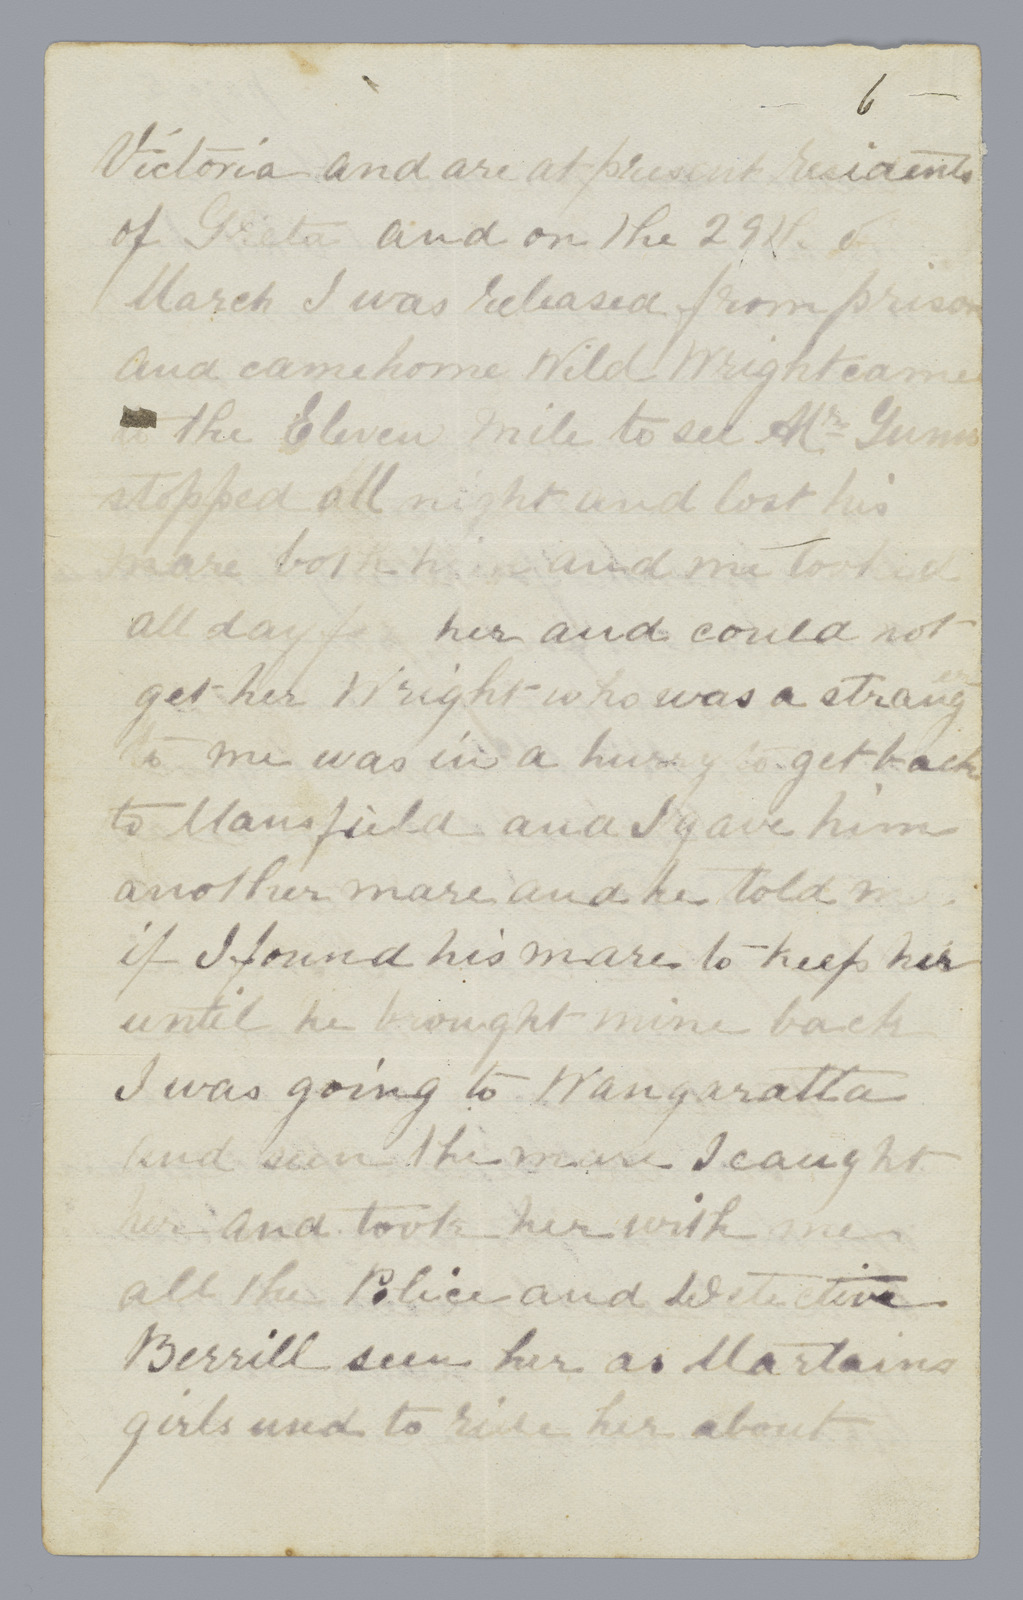 6
Victoria and are at present residents
of Greta and on the 29th of
March I was released from prison
and came home Wild Wright came
to the Eleven Mile to see Mr Gunn
stopped all night and lost his
mare both him and me looked
all day for her and could not
get her Wright who was a stranger
to me was in a hurry to get back
to Mansfield and I gave him
another mare and he told me
if I found his mare to keep her
until he brought mine back
I was going to Wangaratta
and seen the mare I caught
her and took her with me
all the Police and Detective
Berrill seen her as Martains
girls used to ride her about